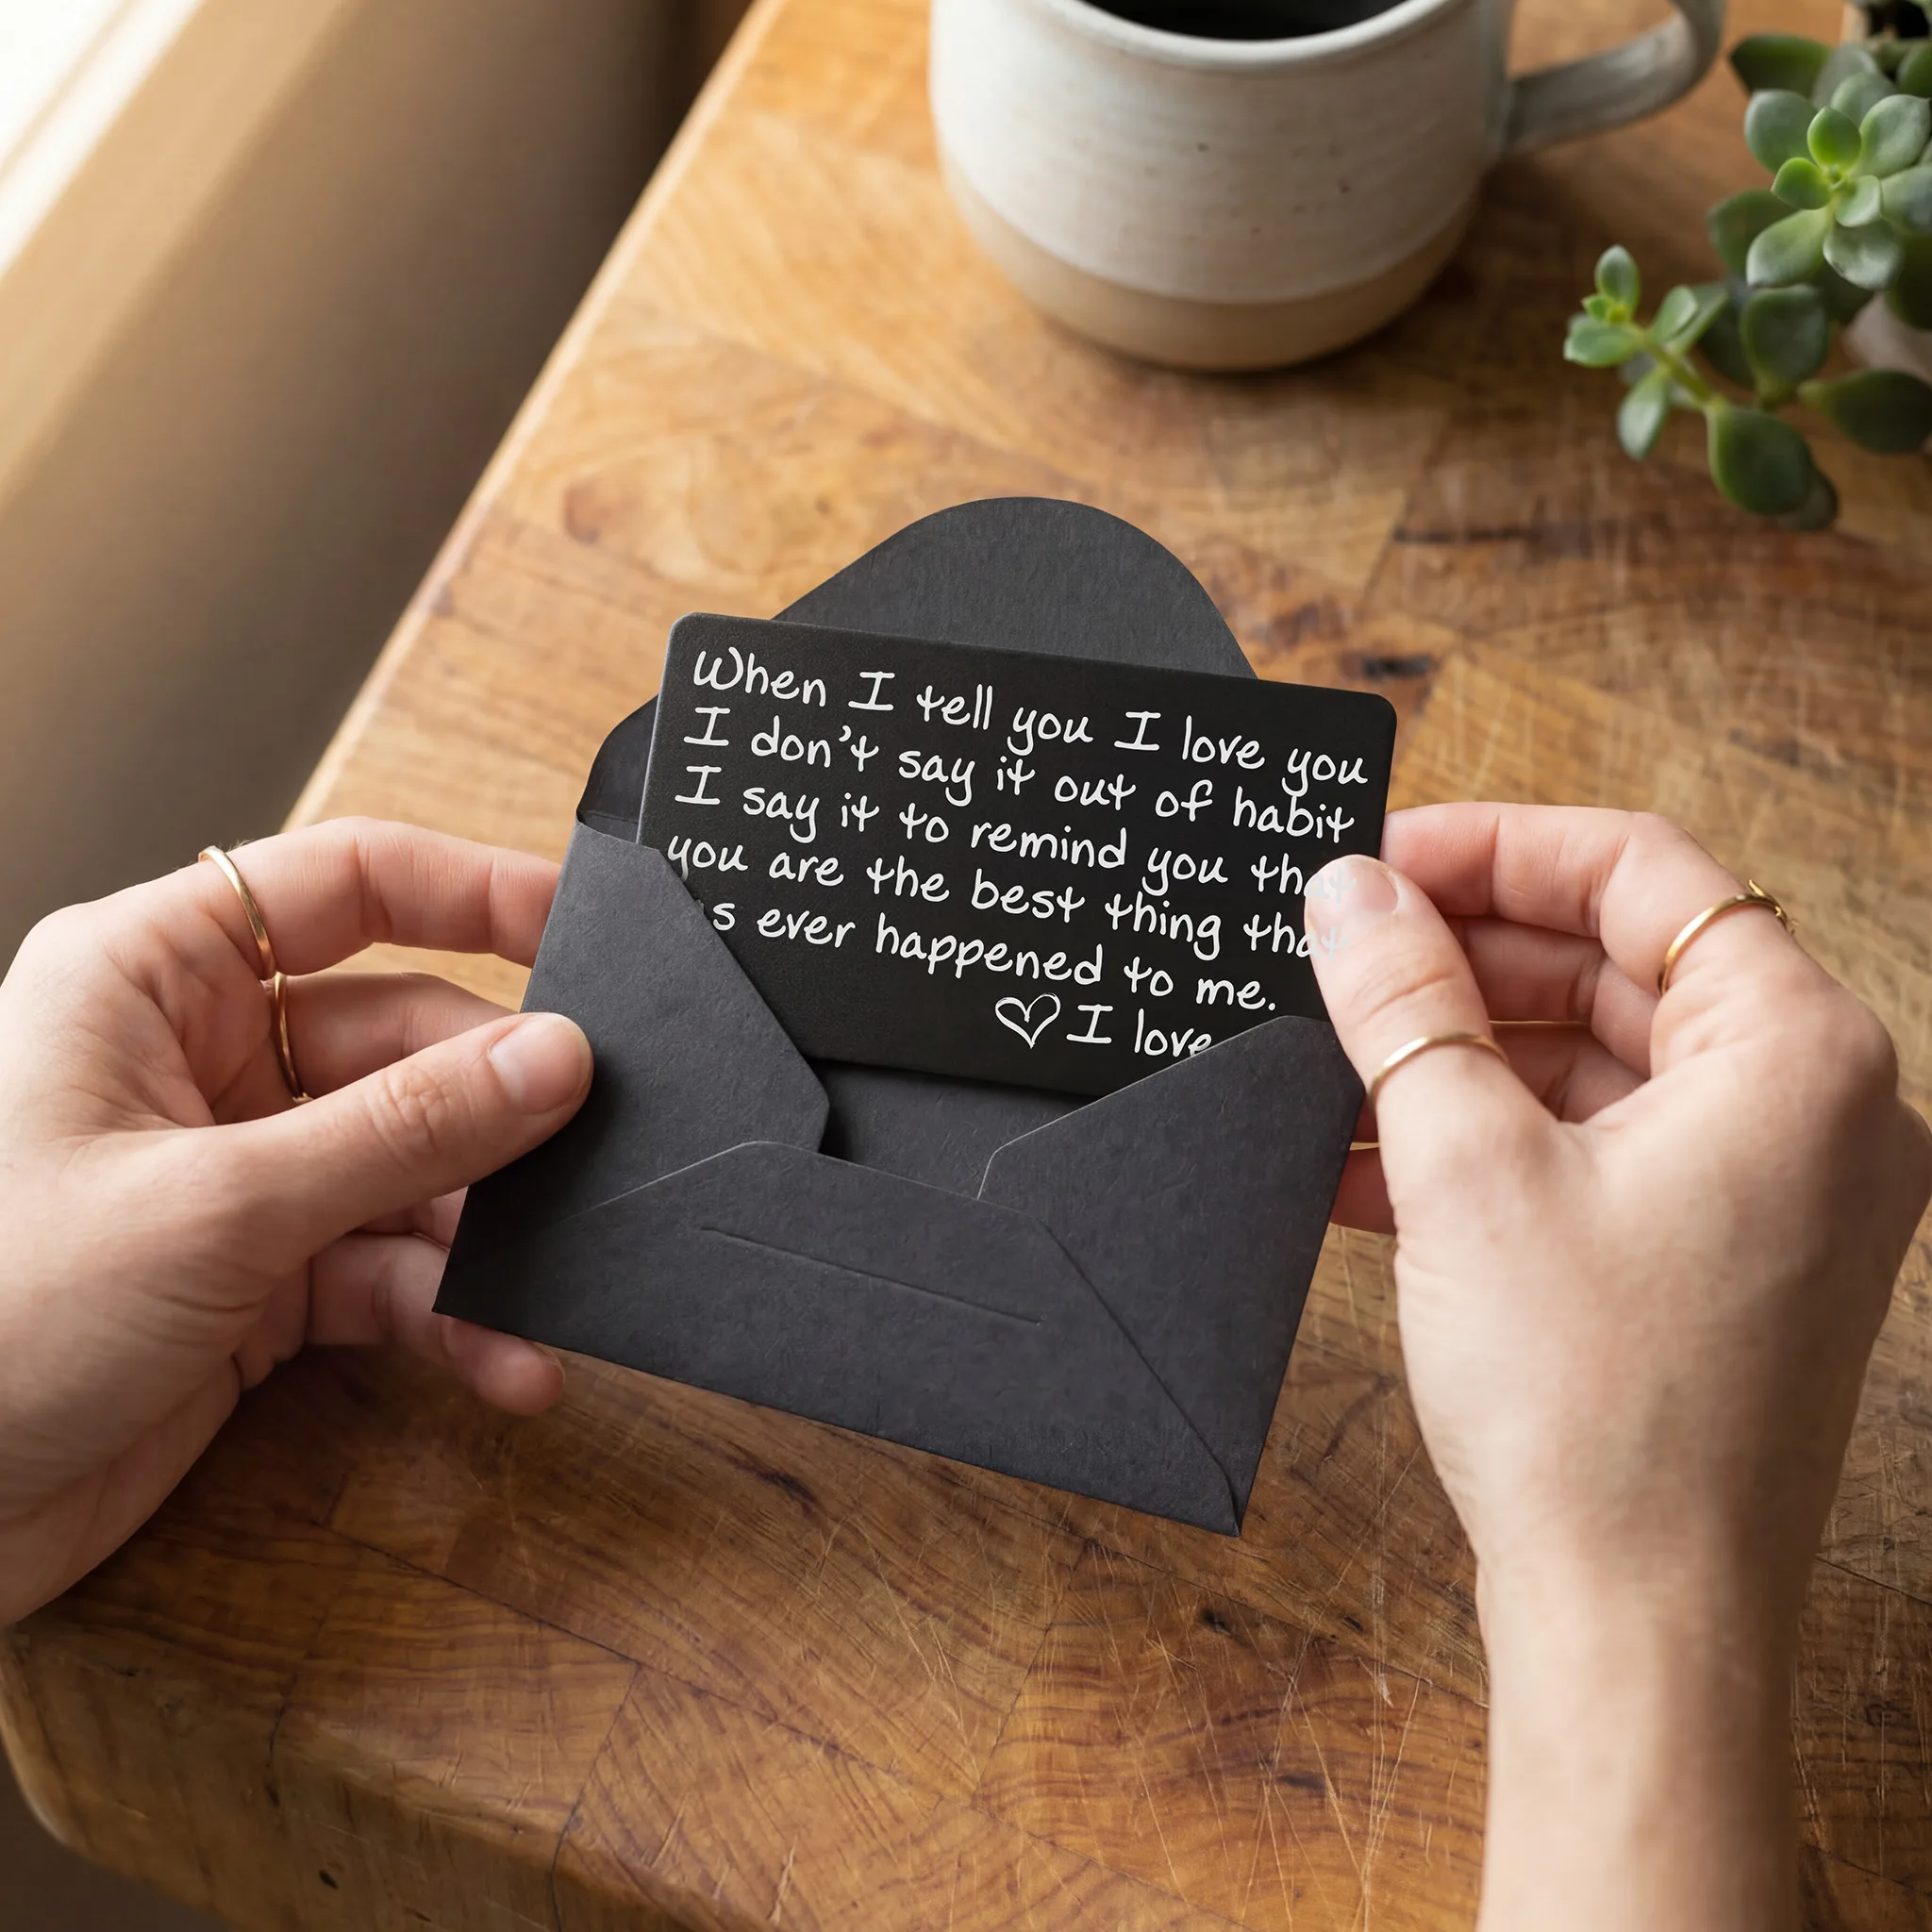 When I tell you I love you
I don't say it out of habit
I say it to remind you that
you are the best thing that
ever happened to me.
♡ I love